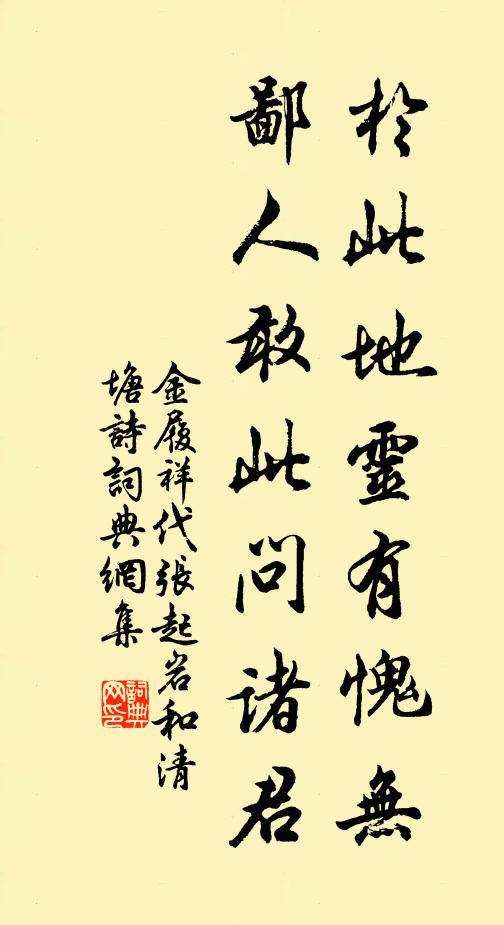 於此地靈有愧無
鄙人敢此問諸君
金履祥代張起岩和清
塘詩詞典網集
詞典網印